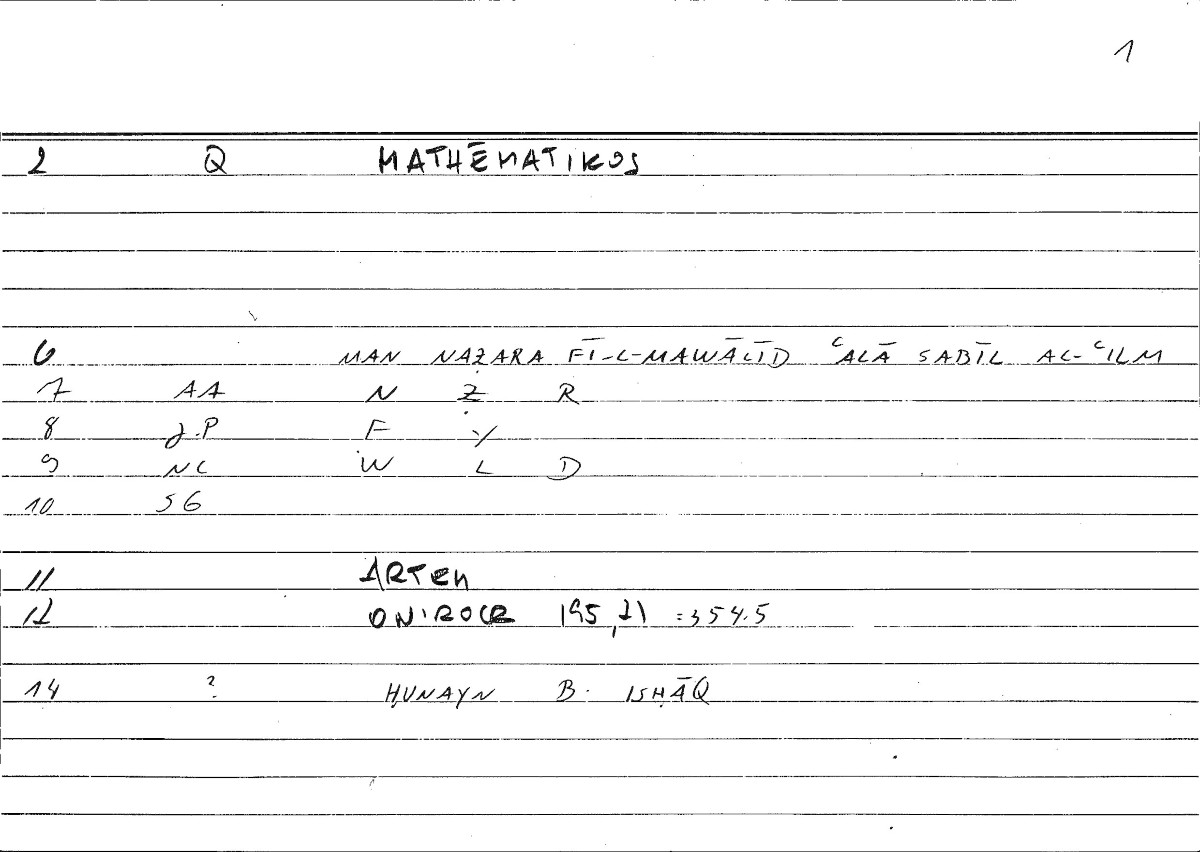 1
2 Q MATHĒMATIKOS
6 MAN NAẒARA FĪ-L-MAWĀLĪD ʿALĀ SABĪL AL-ʿILM
7 AA N Ẓ R
8 J.P F Y
9 NC W L D
10 SG
11 ARTEM
12 ONIROCR 195,21 =354.5
14 ? ḤUNAYN B. ISḤĀQ